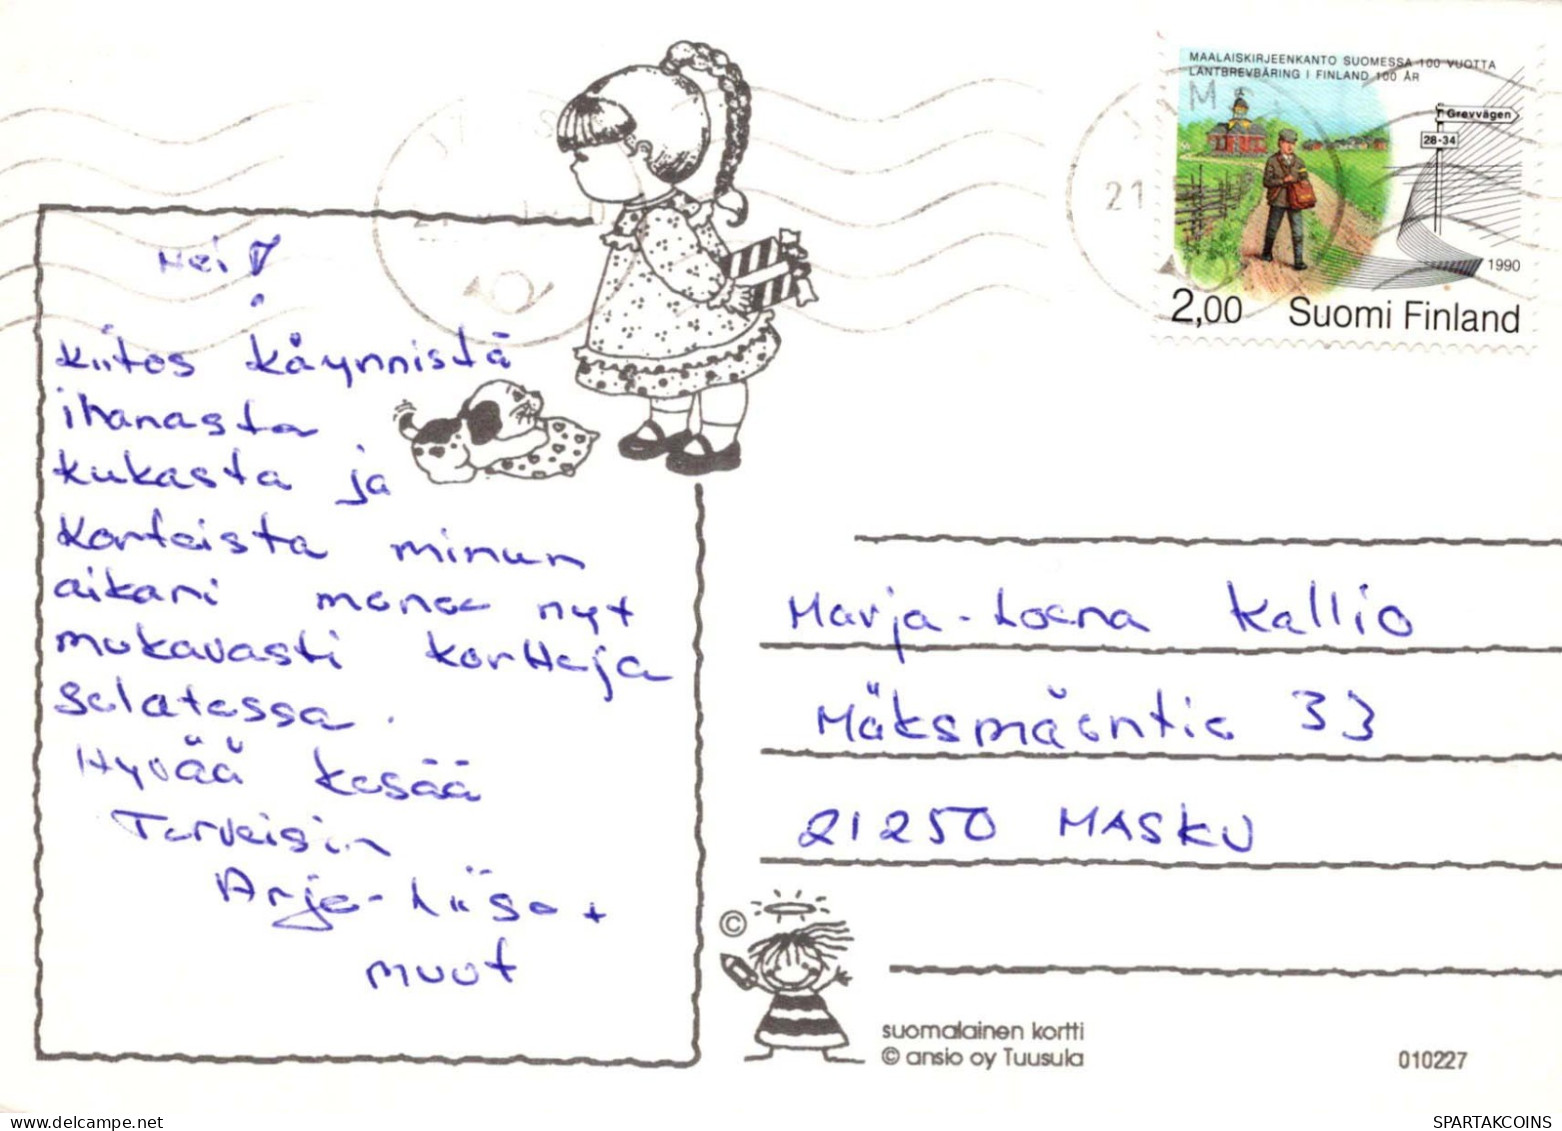 MAALAISKIRJEENKANTO SUOMESSA 100 VUOTTA
LANTBREVBÄRING I FINLAND 100 ÅR
Grevvägen
28-34
1990
2,00 Suomi Finland
21
Hei!
Kiitos käynnistä
ihanasta
kukasta ja
korteista minun
aikani menee nyt
mukavasti kortteja
selatessa.
Hyvää kesää
Terveisin
Arja-Liisa +
muut
Marja-Leena Kallio
Mäksmäentie 33
21250 MASKU
©
suomalainen kortti
© ansio oy Tuusula
010227
SPARTAKCOINS